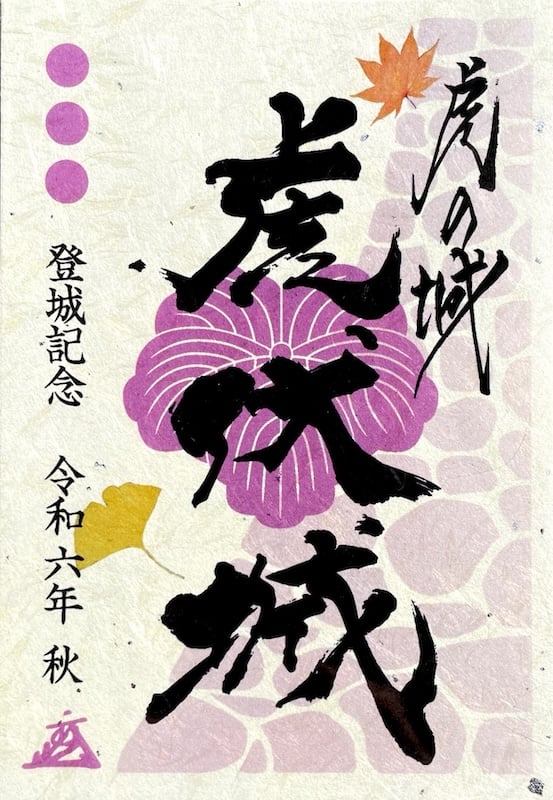 虎の城
虎伏城
登城記念 令和六年 秋